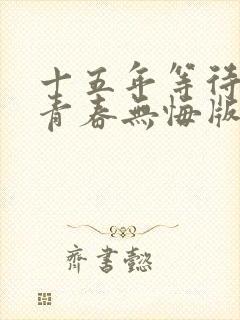 十五年等待
青春無悔版
齊書懿